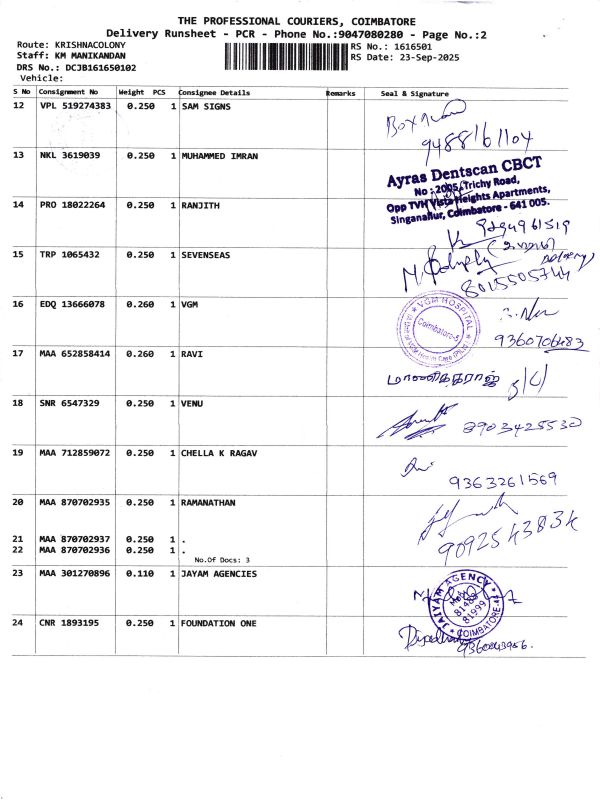 THE PROFESSIONAL COURIERS, COIMBATORE
Delivery Runsheet - PCR - Phone No.:9047080280 - Page No.:2
Route: KRISHNACOLONY
Staff: KM MANIKANDAN
DRS No.: DCJB161650102
Vehicle:
RS No.: 1616501
RS Date: 23-Sep-2025
S No Consignment No Weight PCS Consignee Details Remarks Seal & Signature
12 VPL 519274383 0.250 1 SAM SIGNS
9488161104
13 NKL 3619039 0.250 1 MUHAMMED IMRAN
Ayras Dentscan CBCT
No : 2005, Trichy Road,
Opp TVH Vista Heights Apartments,
Singanallur, Coimbatore - 641 005.
14 PRO 18022264 0.250 1 RANJITH
15 TRP 1065432 0.250 1 SEVENSEAS
8015505744
16 EDQ 13666078 0.260 1 VGM
VGM HOSPITAL
Coimbatore-5
9360706483
17 MAA 652858414 0.260 1 RAVI
18 SNR 6547329 0.250 1 VENU
8903425530
19 MAA 712859072 0.250 1 CHELLA K RAGAV
9363261569
20 MAA 870702935 0.250 1 RAMANATHAN
21 MAA 870702937 0.250 1 .
22 MAA 870702936 0.250 1 .
No.Of Docs: 3
9092543834
23 MAA 301270896 0.110 1 JAYAM AGENCIES
JAIYAM AGENCY
COIMBATORE
24 CNR 1893195 0.250 1 FOUNDATION ONE
9360843956.